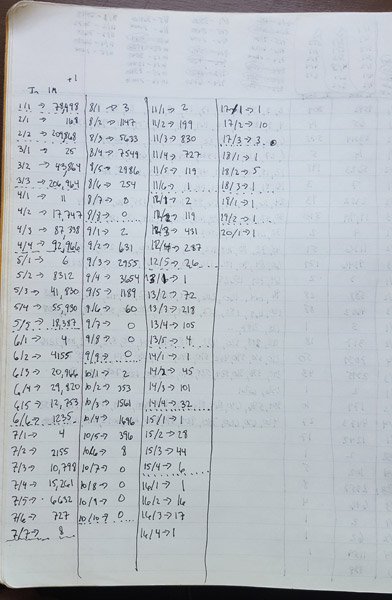 +1
In 1M
1/1 → 78498
2/1 → 168
2/2 → 209868
3/1 → 25
3/2 → 49,864
3/3 → 206,964
4/1 → 11
4/2 → 17,747
4/3 → 87,398
4/4 → 92,966
5/1 → 6
5/2 → 8312
5/3 → 41,830
5/4 → 55,930
5/5 → 18,387
6/1 → 4
6/2 → 4155
6/3 → 20,966
6/4 → 29,820
6/5 → 12,753
6/6 → 1235
7/1 → 4
7/2 → 2155
7/3 → 10,798
7/4 → 15,261
7/5 → 6,632
7/6 → 727
7/7 → 8
8/1 → 3
8/2 → 1147
8/3 → 5633
8/4 → 7549
8/5 → 2986
8/6 → 254
8/7 → 0
8/8 → 0
9/1 → 2
9/2 → 631
9/3 → 2955
9/4 → 3654
9/5 → 1189
9/6 → 60
9/7 → 0
9/8 → 0
9/9 → 0
10/1 → 2
10/2 → 353
10/3 → 1561
10/4 → 1696
10/5 → 396
10/6 → 8
10/7 → 0
10/8 → 0
10/9 → 0
10/10 → 0
11/1 → 2
11/2 → 199
11/3 → 830
11/4 → 727
11/5 → 119
11/6 → 1
12/1 → 2
12/2 → 119
12/3 → 431
12/4 → 287
12/5 → 26
13/1 → 1
13/2 → 72
13/3 → 218
13/4 → 105
13/5 → 4
14/1 → 1
14/2 → 45
14/3 → 101
14/4 → 32
15/1 → 1
15/2 → 28
15/3 → 44
15/4 → 6
16/1 → 1
16/2 → 16
16/3 → 17
16/4 → 1
17/1 → 1
17/2 → 10
17/3 → 3
18/1 → 1
18/2 → 5
18/3 → 1
18/1 → 1
19/2 → 1
20/1 → 1